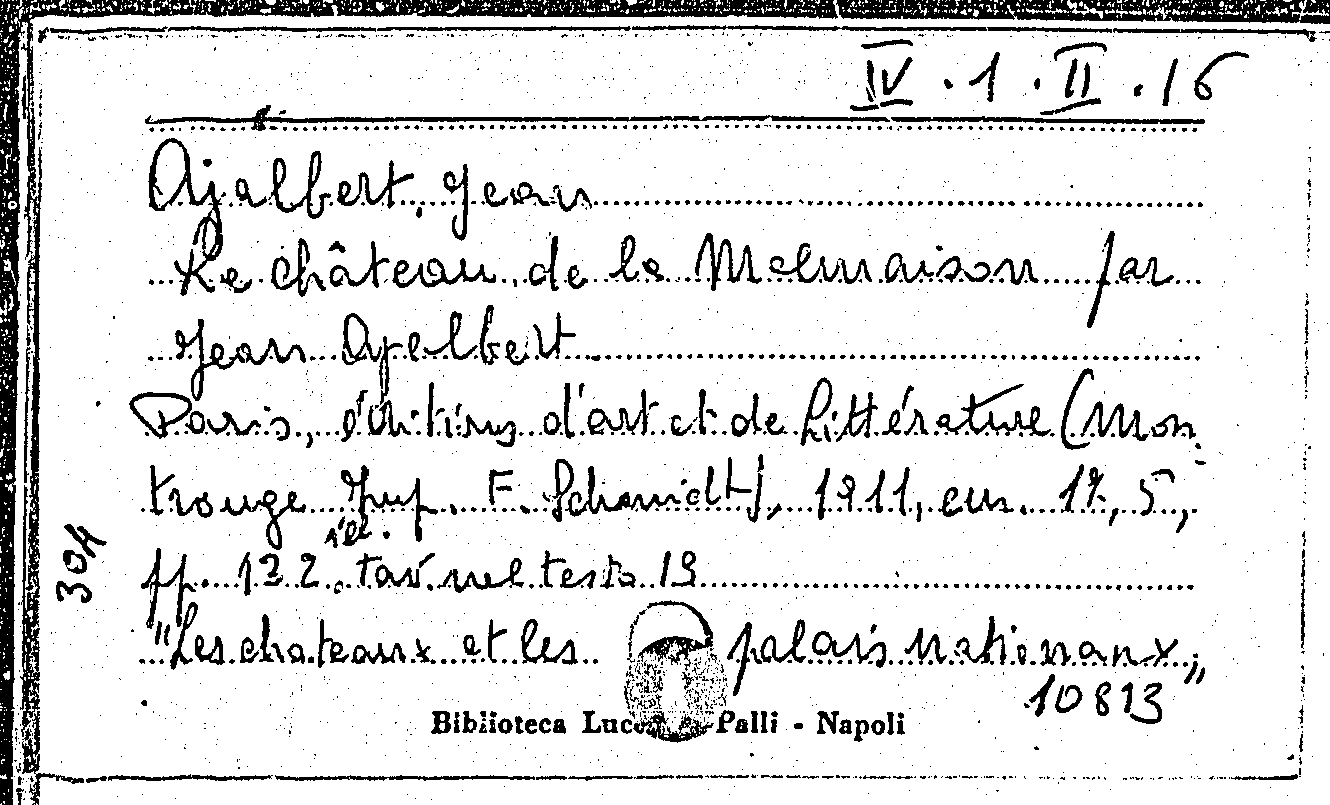 IV . 1 . II . 16
Ajalbert, Jean
Le château de la Malmaison par
Jean Ajalbert
Paris, éditions d'art et de Littérature (Mon
trouge Imp. F. Schmidt), 1911, cm. 17,5,
ill.
pp. 122. tav. nel testo 19
"Les chateaux et les palais nationaux"
10813
304
Biblioteca Palli - Napoli